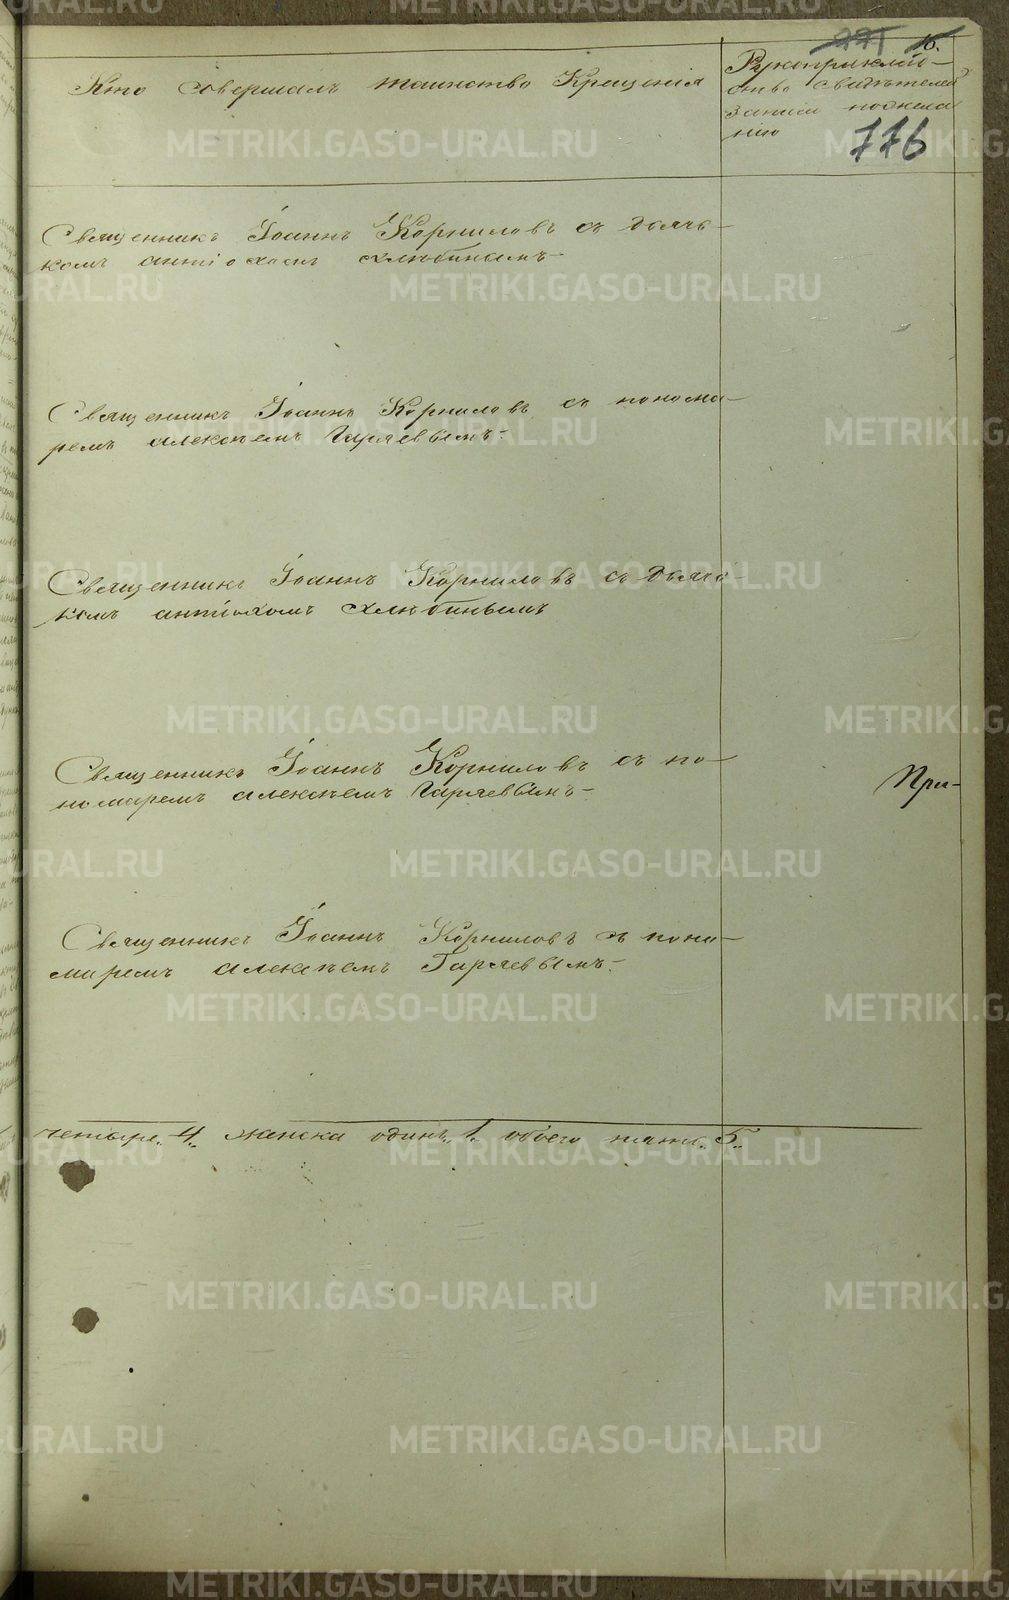 271 16.
Кто совершалъ таинство Крещенія
Рукоприклад-
ство свидѣтелей
записи по жела
нію
776
Священникъ Іоаннъ Корниловъ съ дьяч-
комъ антіохомъ Хлѣбинымъ-
Священникъ Іоаннъ Корниловъ съ понома-
ремъ алексѣемъ Гаряевымъ.-
Священникъ Іоаннъ Корниловъ съ дьяч-
комъ антіохомъ Хлѣбинымъ
Священникъ Іоаннъ Корниловъ съ по-
номаремъ алексѣемъ Гаряевымъ-
При-
Священникъ Іоаннъ Корниловъ съ поно-
маремъ алексѣемъ Гаряевымъ.-
четыре. 4. женска одинъ. 1. обоего пола. 5.
METRIKI.GASO-URAL.RU